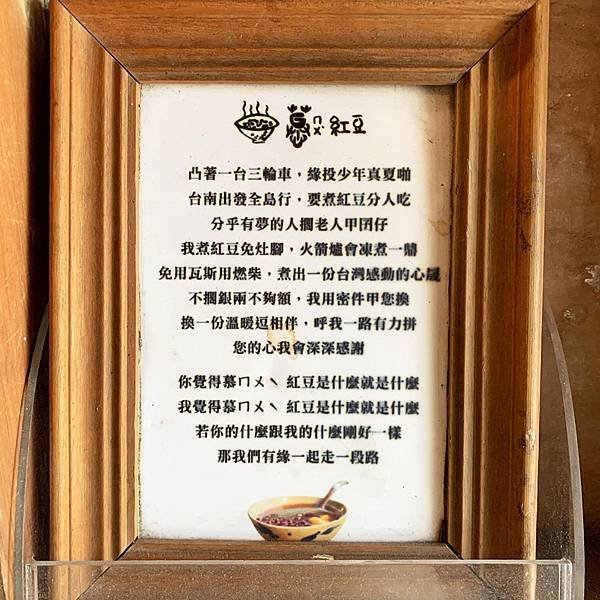 慕ㄇㄨˋ紅豆
凸著一台三輪車，緣投少年真夏啪
台南出發全島行，要煮紅豆分人吃
分乎有夢的人擱老人甲囝仔
我煮紅豆免灶腳，火箭爐會凍煮一鼎
免用瓦斯用燃柴，煮出一份台灣感動的心晟
不擱銀兩不夠額，我用密件甲您換
換一份溫暖逗相伴，呼我一路有力拼
您的心我會深深感謝
你覺得慕ㄇㄨˋ 紅豆是什麼就是什麼
我覺得慕ㄇㄨˋ 紅豆是什麼就是什麼
若你的什麼跟我的什麼剛好一樣
那我們有緣一起走一段路